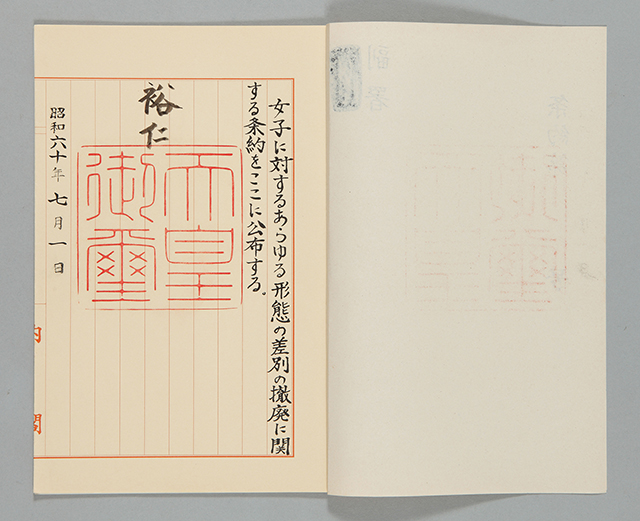 女子に対するあらゆる形態の差別の撤廃に関
する条約をここに公布する。
裕仁
天皇
御璽
昭和六十年七月一日
内閣